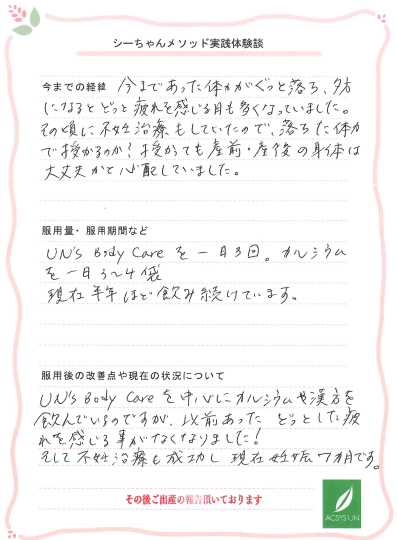 シーちゃんメソッド実践体験談
今までの経緯 今まであった体力がぐっと落ち、夕方
になるとどっと疲れを感じる日も多くなっていました。
その頃に不妊治療もしていたので、落ちた体力
で授かるのか？授かっても産前・産後の身体は
大丈夫かと心配していました。
服用量・服用期間など
UN's Body Care を一日3回。カルシウム
を一日3～4袋
現在半年ほど飲み続けています。
服用後の改善点や現在の状況について
UN's Body Care を中心にカルシウムや漢方を
飲んでいるのですが、以前あったどっとした疲
れを感じる事がなくなりました！
そして不妊治療も成功し現在妊娠7ヵ月です。
その後ご出産の報告頂いております
ACSYS UN